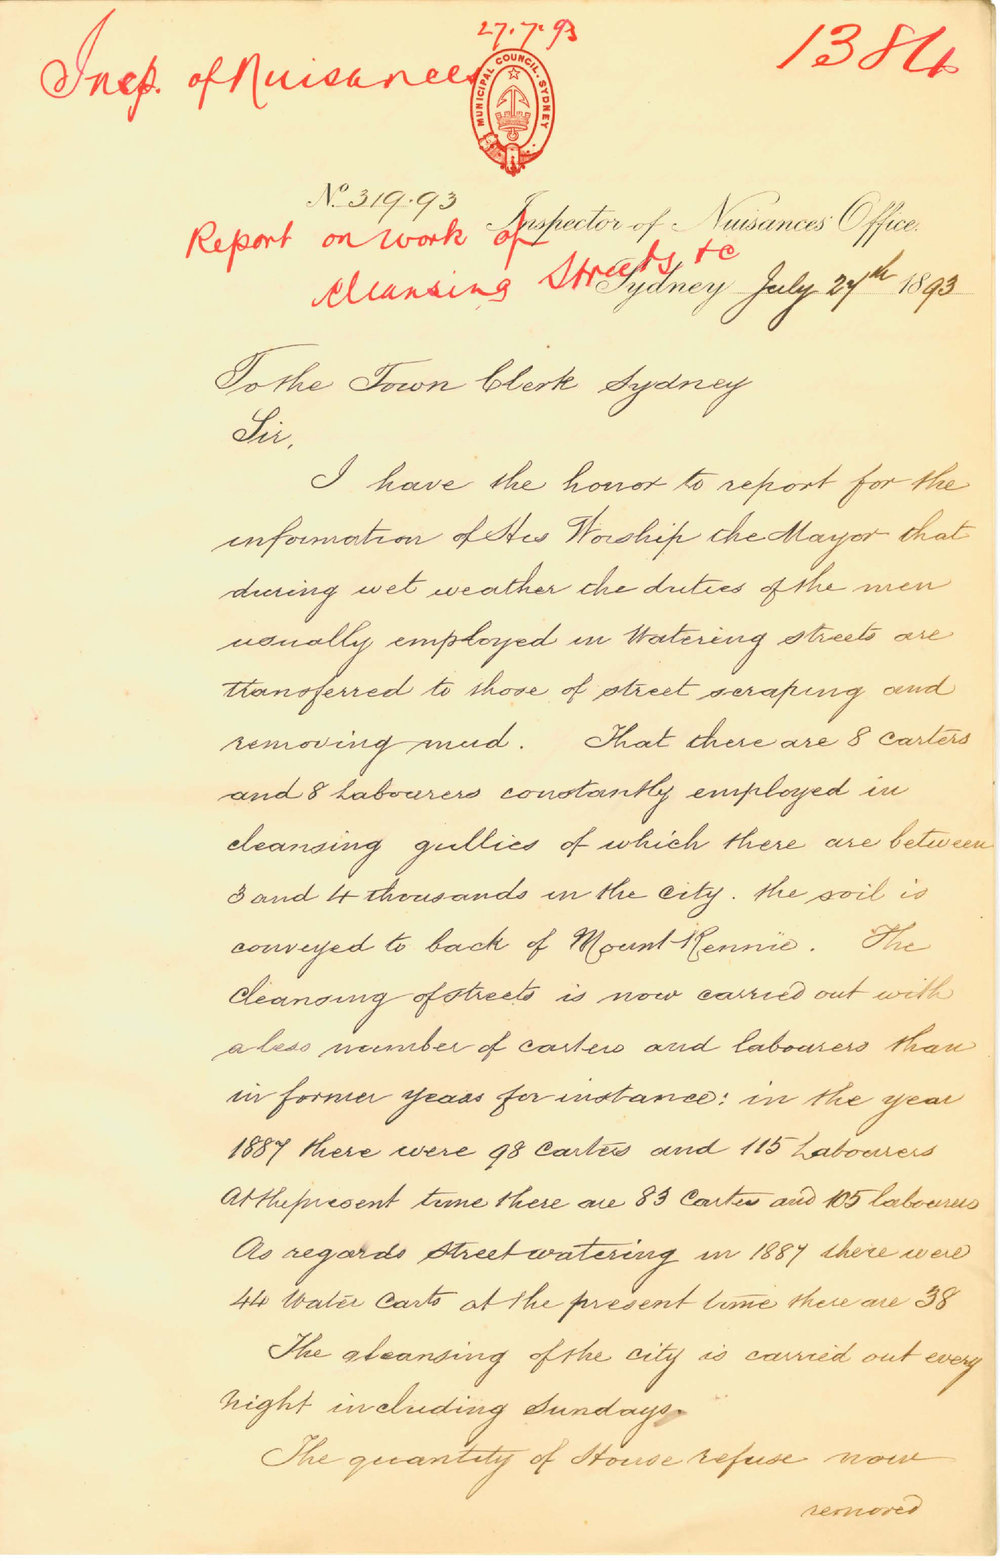 27.7.93
1384
Insp. of Nuisances
MUNICIPAL COUNCIL. SYDNEY
No. 319.93
Inspector of Nuisances' Office.
Report on work of
Cleansing Streets &c
Sydney July 27th 1893
To the Town Clerk Sydney
Sir,
I have the honor to report for the
information of His Worship the Mayor that
during wet weather the duties of the men
usually employed in Watering streets are
transferred to those of street scraping and
removing mud. That there are 8 Carters
and 8 Labourers constantly employed in
cleansing gullies of which there are between
3 and 4 thousands in the city. the soil is
conveyed to back of Mount Rennie. The
Cleansing of streets is now carried out with
a less number of carters and labourers than
in former years for instance: in the year
1887 there were 98 Carters and 115 Labourers
At the present time there are 83 Carters and 105 labourers
As regards street watering in 1887 there were
44 Water Carts at the present time there are 38
The cleansing of the city is carried out every
night including Sundays.
The quantity of House refuse now
removed